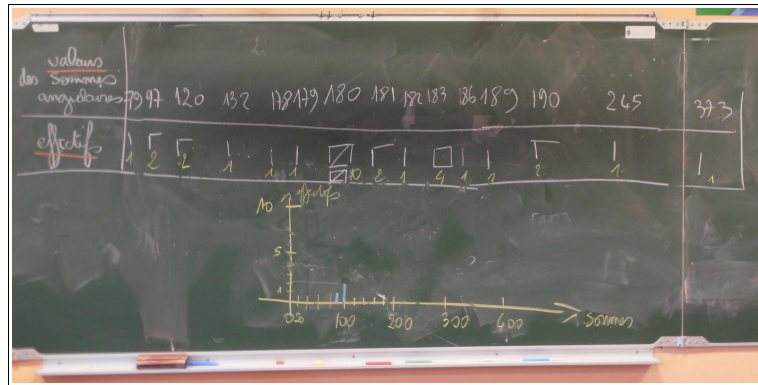 valeurs
des sommes
angulaires 79 97 120 132 178 179 180 181 182 183 186 189 190 245 373
effectifs 1 2 2 1 1 1 10 2 1 4 1 1 2 1 1
effectifs
10
5
1
0 20 100 200 300 400 sommes